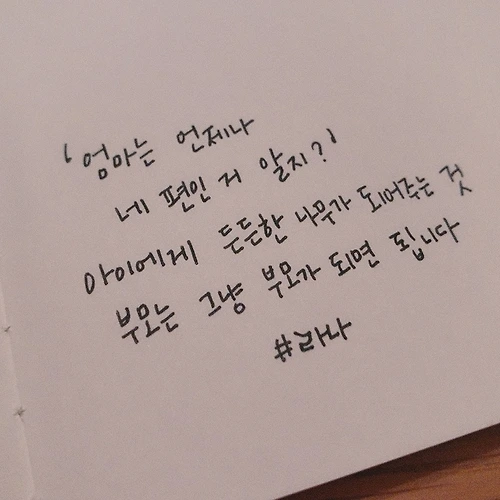 '엄마는 언제나
네 편인 거 알지?'
아이에게 든든한 나무가 되어주는 것
부모는 그냥 부모가 되면 됩니다
#라나